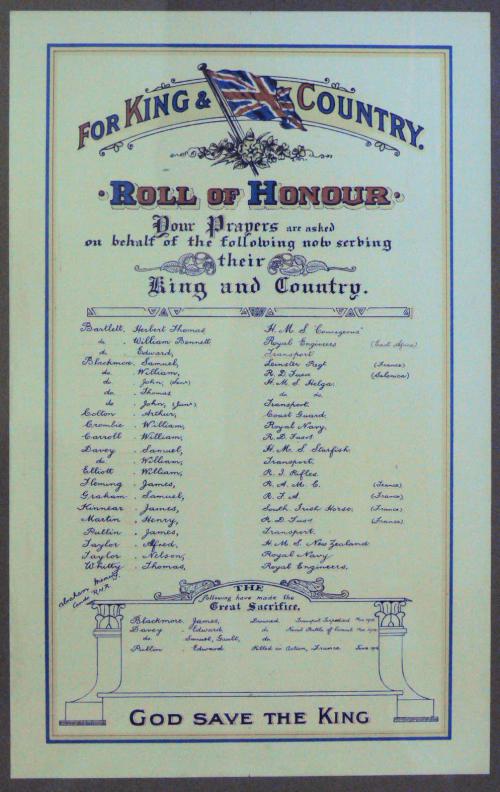 FOR KING & COUNTRY.
ROLL OF HONOUR
Your Prayers are asked
on behalf of the following now serving
their
King and Country.
Bartlett, Herbert Thomas H.M.S "Courageous"
do. William Bennett Royal Engineers (East Africa)
do. Edward, Transport
Blackmore, Samuel, Leinster Regt (France)
do. William, R.D. Fusrs (Salonica)
do. John, (Senr) H.M.S Helga.
do. Thomas do do.
do. John, (Junr) Transport.
Colton Arthur, Coast Guard.
Crombie William, Royal Navy.
Carroll William, R.D. Fusrs
Davey Samuel, H.M.S. Starfish.
do. William, Transport.
Elliott William, R.I. Rifles.
Fleming James, R.A.M.C. (France)
Graham Samuel, R.F.A. (France)
Kinnear James, South Irish Horse. (France)
Martin Henry, R.D. Fusrs (France)
Pullin James, Transport.
Taylor Alfred, H.M.S. New Zealand
Taylor Nelson, Royal Navy
Whitty Thomas, Royal Engineers.
Abraham R.N.R.
THE
following have made the
Great Sacrifice.
Blackmore, James, Drowned Transport Torpedoed
Davey Edward, do Naval Battle of Coronel Nov
do. Samuel, do.
Pullin Edward Killed in Action, France June
GOD SAVE THE KING